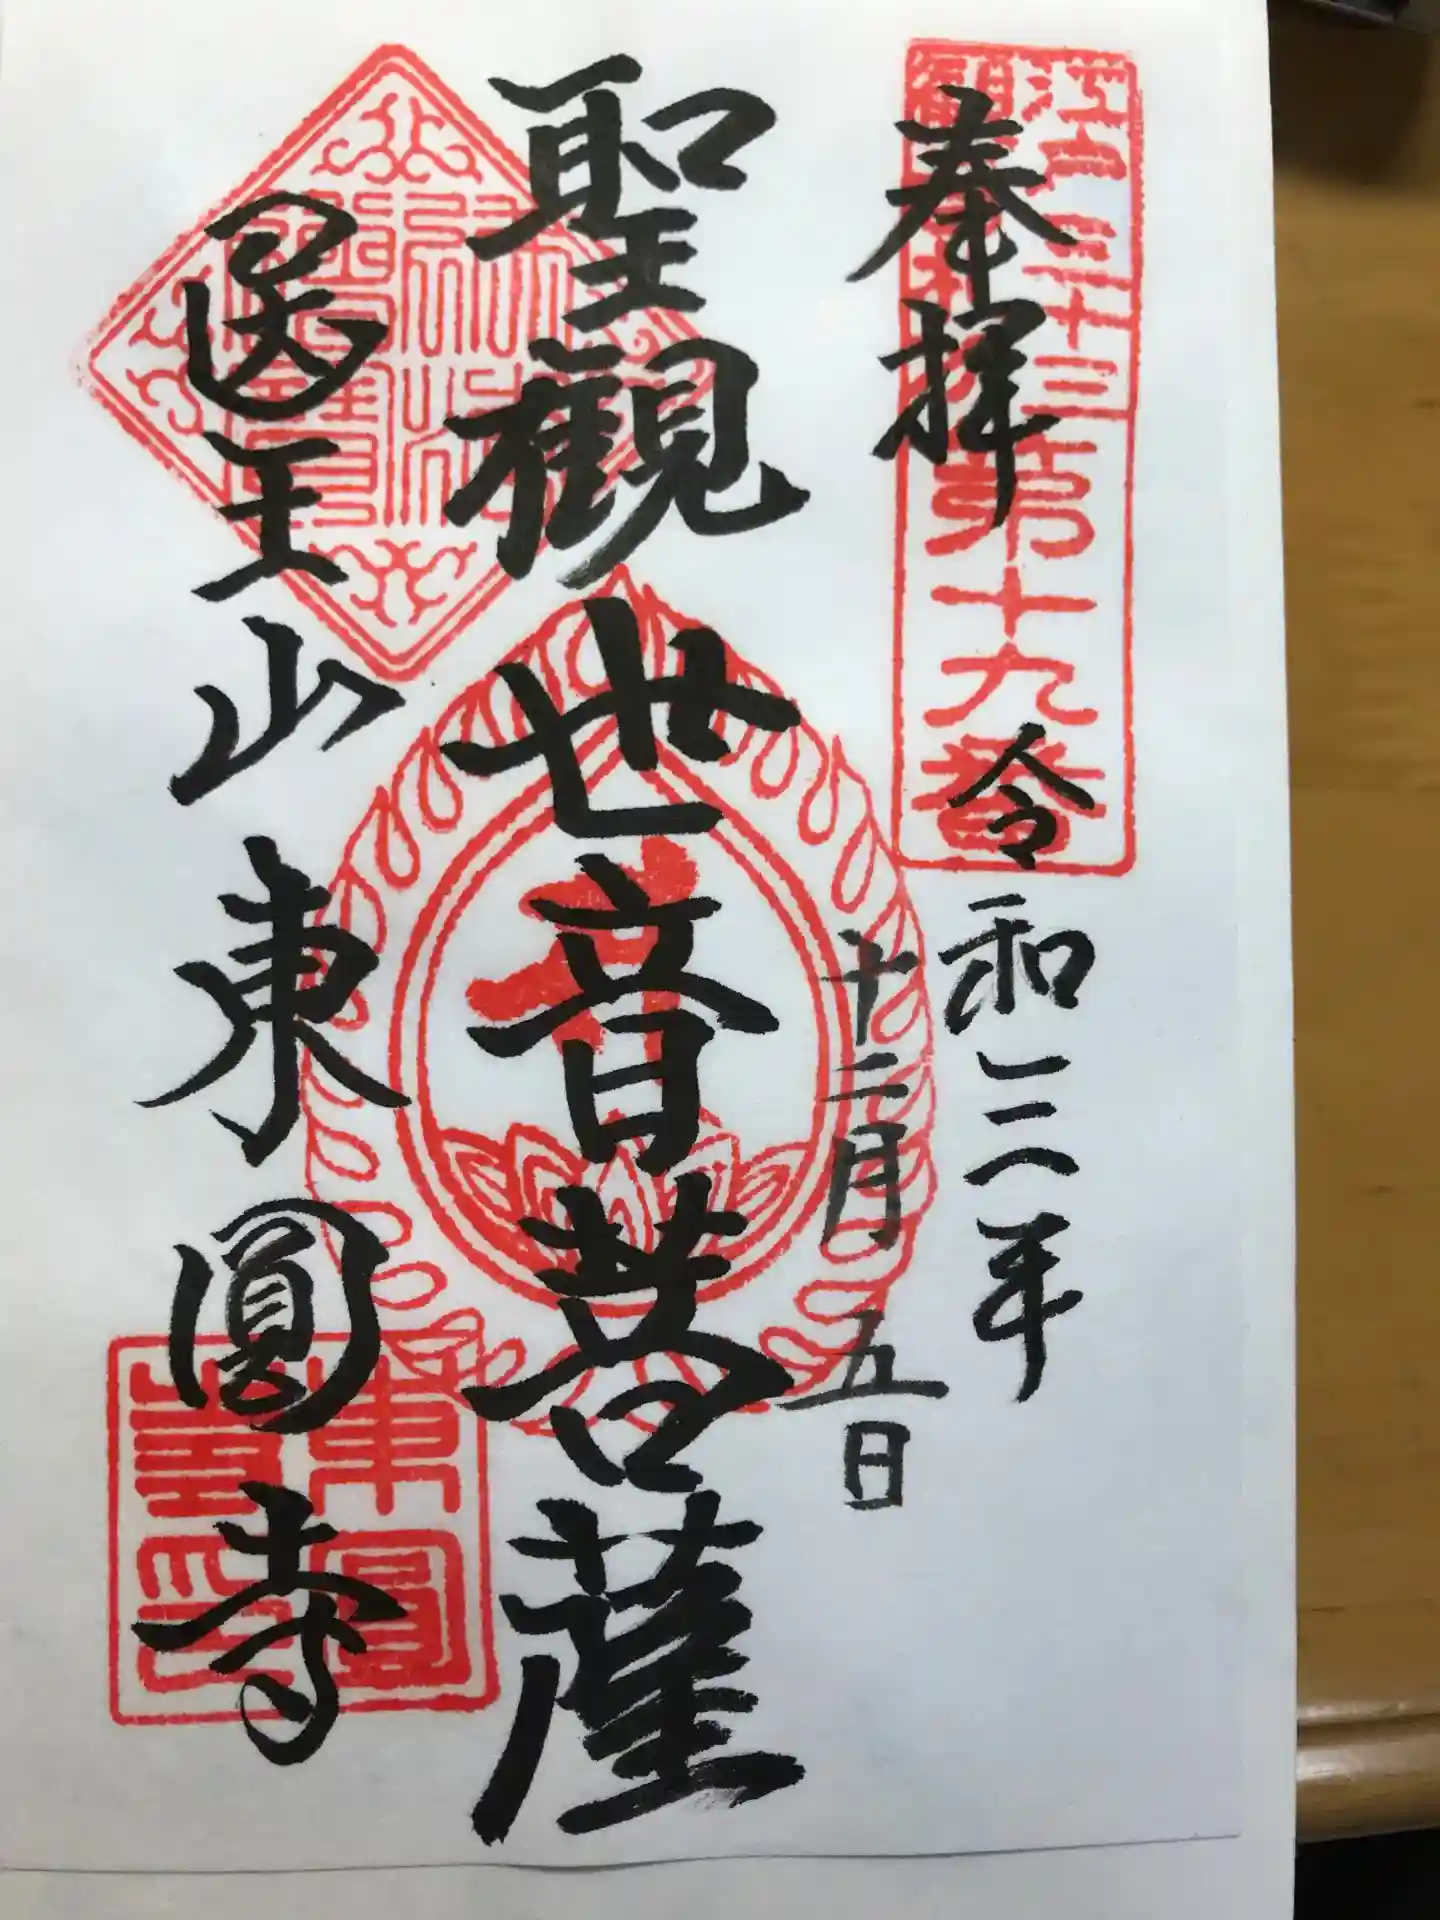 江戸三十三
観音札所
第十九番
奉拝
令和三年
十二月五日
聖観世音菩薩
医王山東圓寺
東圓
寺印